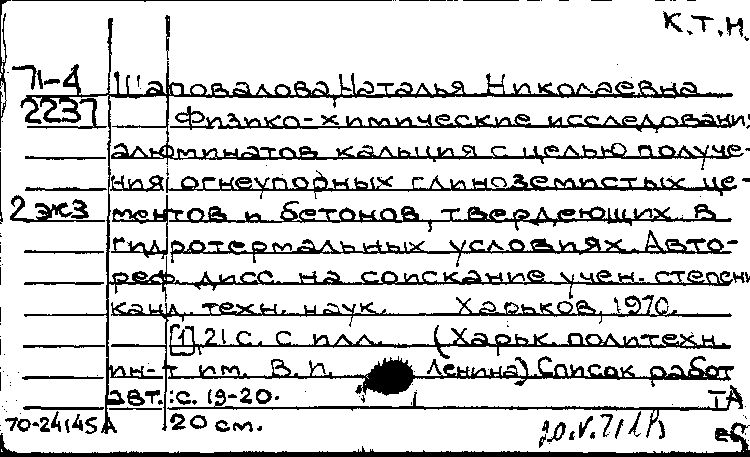 К.Т.Н.
71-4 Шаповалова, Наталья Николаевна
2237 Физико-химические исследования
алюминатов кальция с целью получе-
ния огнеупорных глиноземистых це-
2 экз ментов и бетонов, твердеющих в
гидротермальных условиях. Авто-
реф. дисс. на соискание учен. степени
канд. техн. наук. Харьков, 1970.
[1], 21 с. с илл. (Харьк. политехн.
ин-т им. В. И. Ленина). Список работ
авт.: с. 19-20. ТА
70-24145А 20 см. 20.V.71